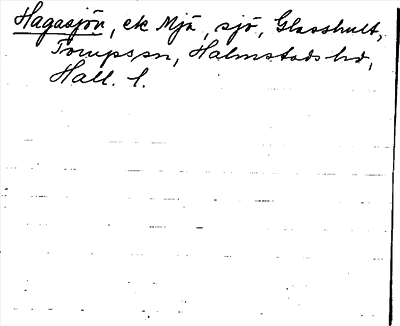 Hagasjön, ek Mjä, sjö, Glasshult,
Torups sn, Halmstads hd,
Hall. l.